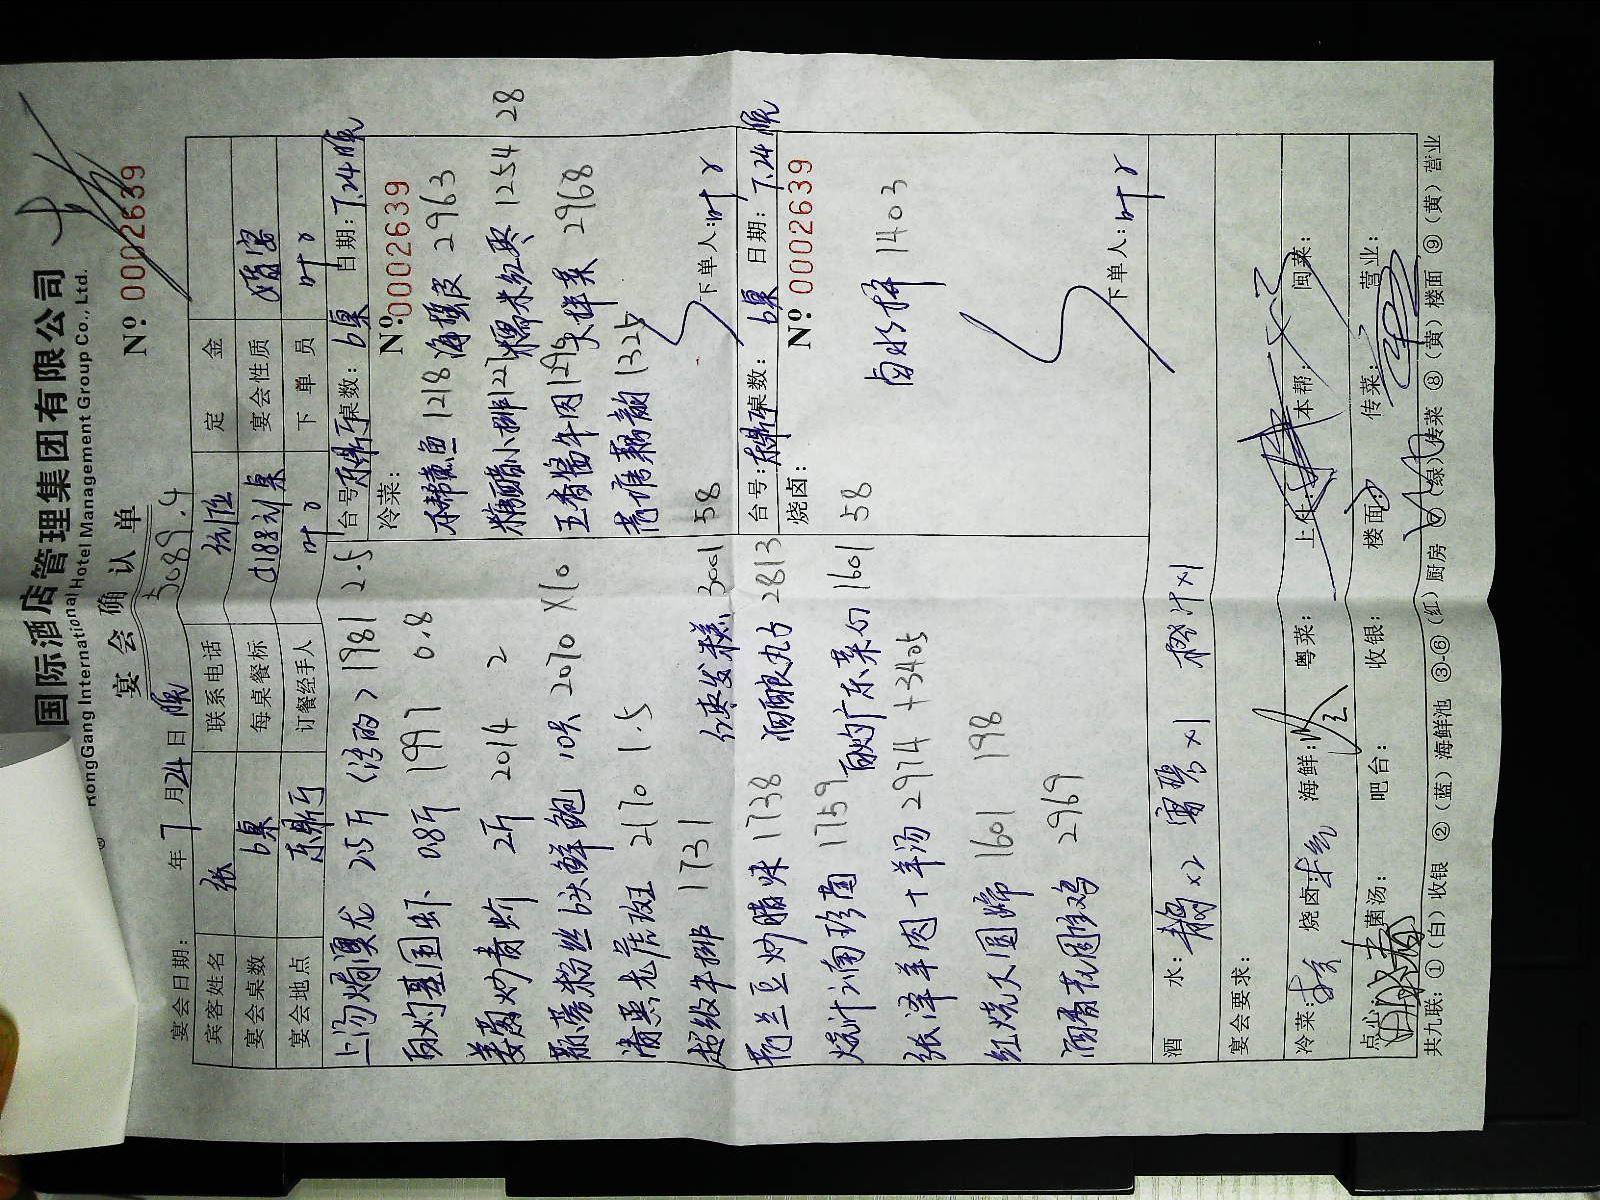 国际酒店管理集团有限公司
HongGang International Hotel Management Group Co., Ltd.
宴会确认单
№ 0002639
5089.4
宴会日期: 年 7月24日 晚
宾客姓名 张 联系电话 定金
宴会桌数 6桌 每桌餐标 4188元/桌 宴会性质 婚宴
宴会地点 东鼎厅 订餐经手人 叶 下单员 叶
上汤焗澳龙 2.5斤 (活的) 1981 2.5
白灼基围虾 0.8斤 1997 0.8
姜葱炒青蟹 2斤 2014 2
蒜蓉粉丝6头鲜鲍 10只 2070 X10
清蒸龙虎斑 2170 1.5
超级牛排 1731
红枣发糕 3001 58
荷兰豆炒腊味 1738
酒酿丸子 2813
烧汁海南珍菌 1759
白灼广东菜心 1601 58
张泽羊肉+羊汤 2974+3405
红烧大圆蹄 1601 198
酒香花雕鸡 2969
台号: 东鼎厅 桌数: 6桌 日期: 7.24晚
冷菜: № 0002639
本帮熏鱼 1218 海蜇皮 2963
糖醋小排 1227 糯米红枣 1254 28
五香酱牛肉 1296 大拌菜 2968
1325
下单人: 叶
台号: 东鼎厅 桌数: 6桌 日期: 7.24晚
烧卤: № 0002639
卤水拼 1403
下单人: 叶
酒水: x2 雪碧x1 橙汁x1
宴会要求:
冷菜: 烧卤: 海鲜: 粤菜: 上什: 本帮: 闽菜:
点心: 菌汤: 吧台: 收银: 楼面: 传菜: 营业:
共九联: ①(白)收银 ②(蓝)海鲜池 ③-⑥(红)厨房 ⑦(绿)传菜 ⑧(黄)楼面 ⑨(黄)营业